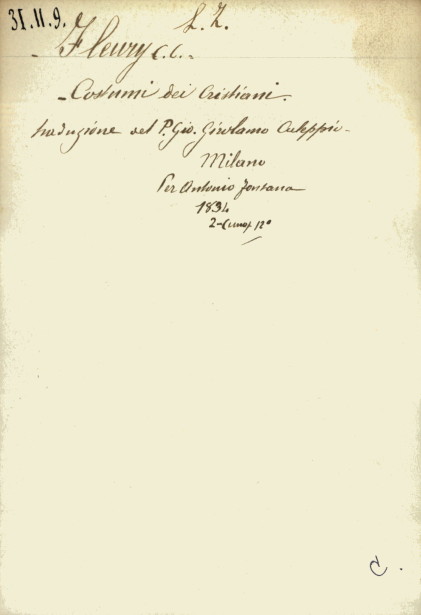 31.11.9.
L. Z.
Fleury C. C.
Costumi dei Cristiani.
traduzione del P. Gio. Girolamo Caleppio
Milano
Per Antonio Fontana
1834
12°
C.